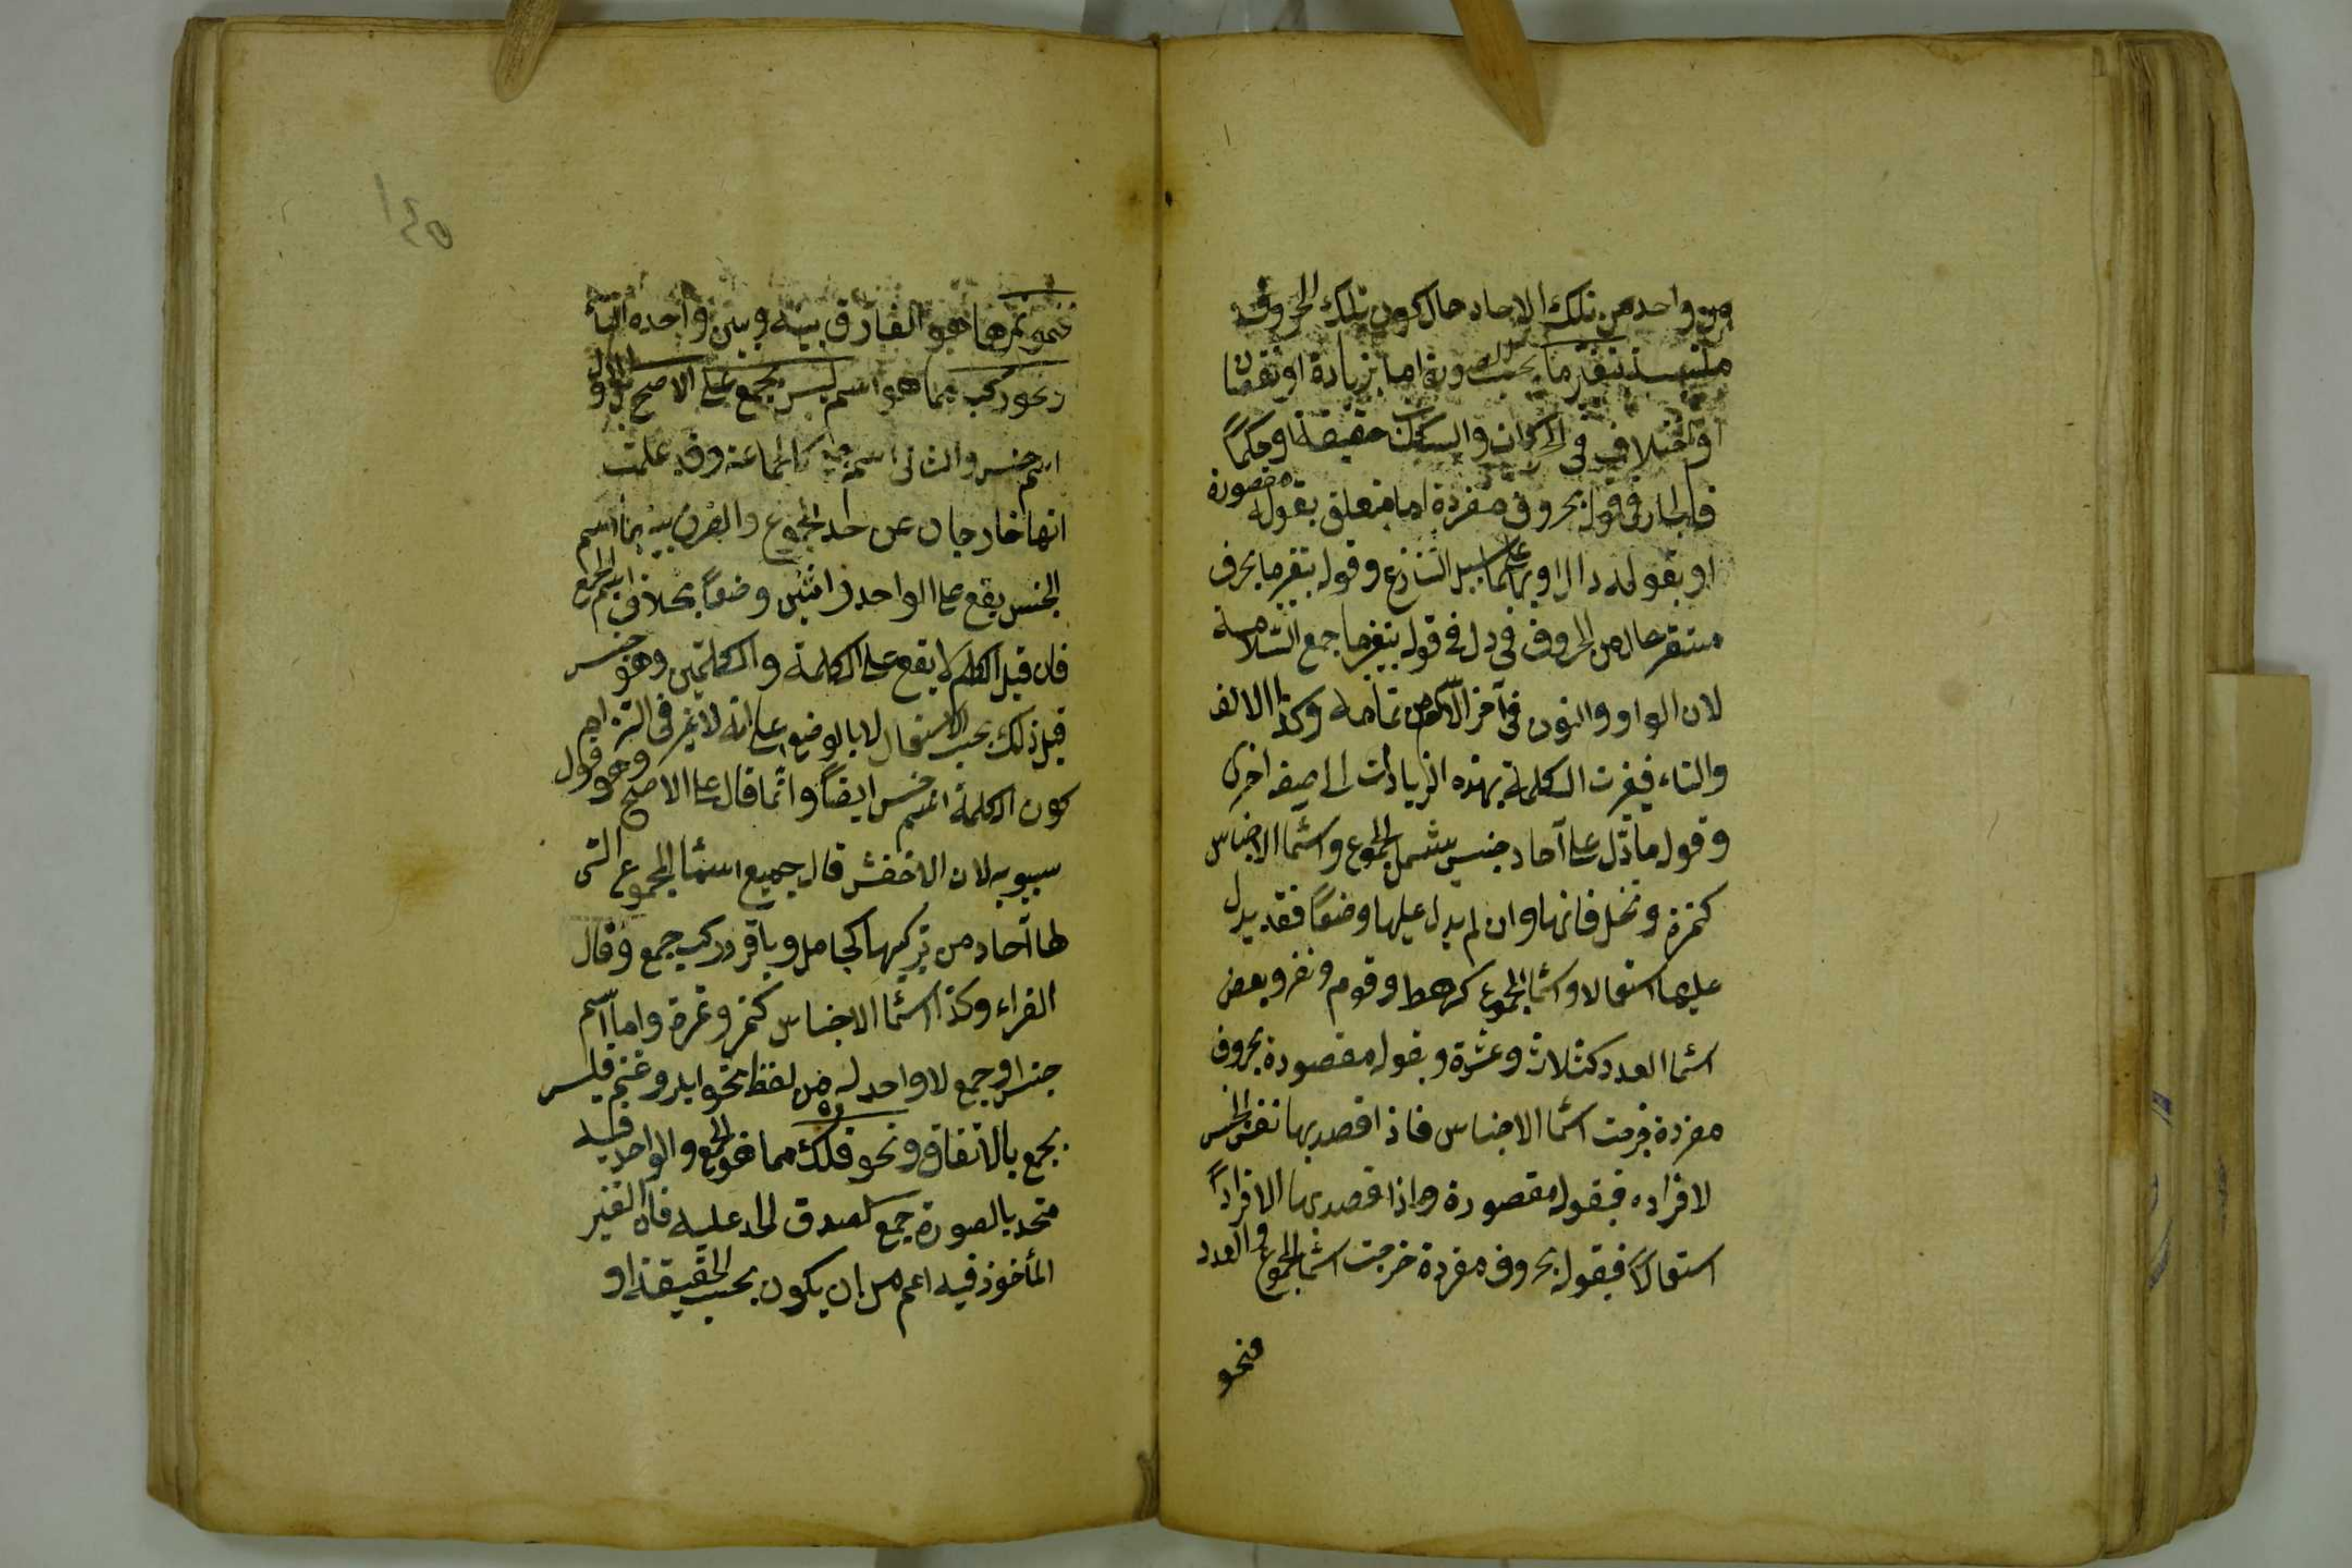 من واحد من تلك الاحاد حال كون تلك الحروف
ملتبسة بتغير ما بحسب الصورة اما بزيادة او نقصان
او اختلاف فى الحركات والسكنات حقيقة او حكماً
فالجار فى قوله بحروف مفردة اما متعلق بقوله مقصودة
او بقوله دال او بهما على سبيل التنازع وقوله بتغير ما بحرف
مستقر حال من الحروف فى دل فى قوله بتغير ما جمع السلامة
لان الواو والنون فى آخر الاسم من تمامه وكذا الالف
والتاء فيغيرت الكلمة بهذه الزيادات الى صيغة اخرى
وقوله ما دّل على آحاد جنس يشمل المجموع واسما الاجناس
كتمرة ونخل فانها وان لم يدل عليها وضعاً فقد يدل
عليها استعمالا واسما الجموع كرهط وقوم ونفر وبعض
اسما العدد كثلاثة وعشرة وبقوله مقصودة بحروف
مفردة خرجت اسما الاجناس فاذا قصد بها نفس الجنس
لا افراده فبقوله مقصودة واذا قصد بها الافراد
استعمالاً فبقوله بحروف مفردة خرجت اسما الجموع والعدد
فنحو
١٤٥
فنحو تمر مما هو الفارق بينه وبين واحده التاء
ونحو ركب مما هو اسم ليس بجمع على الاصح بل الاول
اسم جنس والثانى اسم جمع كالجماعة وقد علمت
انهما خارجان عن حد المجموع والفرق بينهما ان اسم
الجنس يقع على الواحد والاثنين وضعاً بخلاف اسم الجمع
فان قيل الكلم لا يقع على الكلمة والكلمتين وهو جنس
قيل ذلك بحسب الاستعمال لا بالوضع على انه لا ضير فى التزام
كون الكلمة اسم جنس ايضاً وانما قال على الاصح وهو قول
سيبويه لان الاخفش قال جميع اسما المجموع التى
لها آحاد من تركيبها كجامل وباقر وركب جمع وقال
الفراء وكذا اسما الاجناس كتمر وتمرة واما اسم
جنس او جمع لا واحد له من لفظه نحو ابل وغنم فليس
بجمع بالاتفاق ونحو فلك مما هو الجمع والواحد فيه
متحد بالصورة جمع لصدق الحد عليه فان التغير
المأخوذ فيه اعم من ان يكون بحسب الحقيقة او